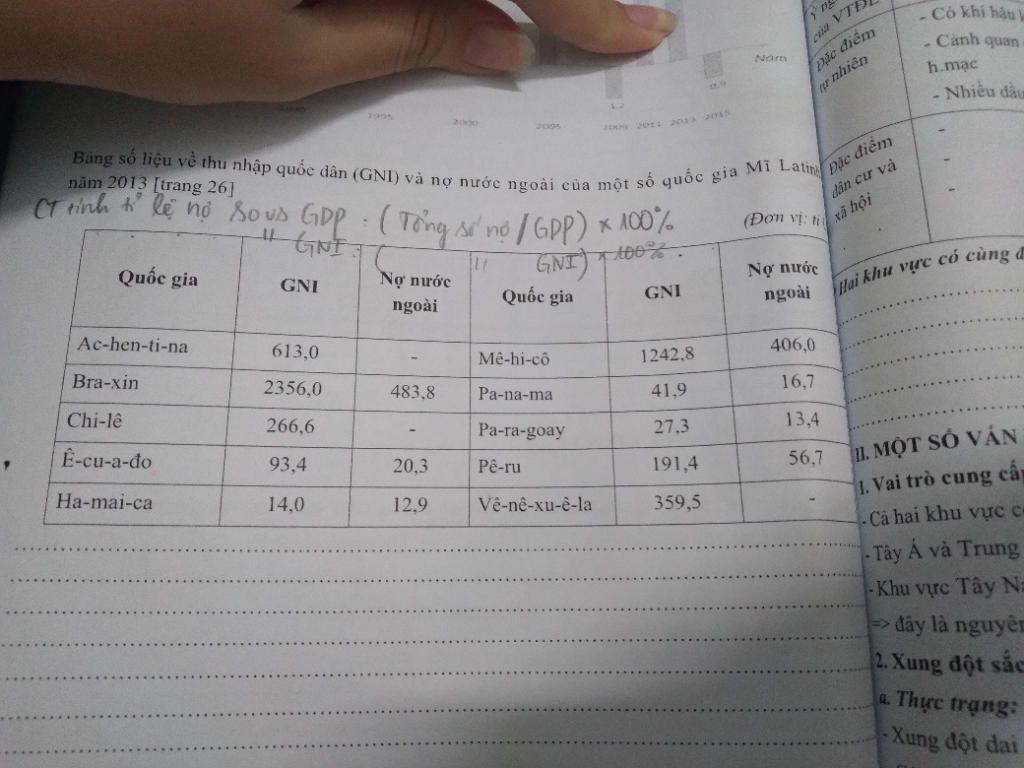 Năm
1,2
0,9
1995
2000
2005
2009 2011 2013 2015
Bảng số liệu về thu nhập quốc dân (GNI) và nợ nước ngoài của một số quốc gia Mĩ Latinh
năm 2013 [trang 26]
CT tính tỉ lệ nợ so với GDP : (Tổng số nợ / GDP) × 100%
(Đơn vị:
" GNI : ( " GNI) × 100%.
Quốc gia GNI Nợ nước ngoài Quốc gia GNI Nợ nước ngoài
Ac-hen-ti-na 613,0 - Mê-hi-cô 1242,8 406,0
Bra-xin 2356,0 483,8 Pa-na-ma 41,9 16,7
Chi-lê 266,6 - Pa-ra-goay 27,3 13,4
Ê-cu-a-đo 93,4 20,3 Pê-ru 191,4 56,7
Ha-mai-ca 14,0 12,9 Vê-nê-xu-ê-la 359,5 -
của VTĐL
Đặc điểm
tự nhiên
- Có khí hậu
- Cảnh quan
h.mạc
- Nhiều dầu
Đặc điểm
dân cư và
xã hội
-
-
-
Hai khu vực có cùng
II. MỘT SỐ VẤN
1. Vai trò cung cấp
- Cả hai khu vực
- Tây Á và Trung
- Khu vực Tây
=> đây là nguyên
2. Xung đột sắc
a. Thực trạng:
- Xung đột dai